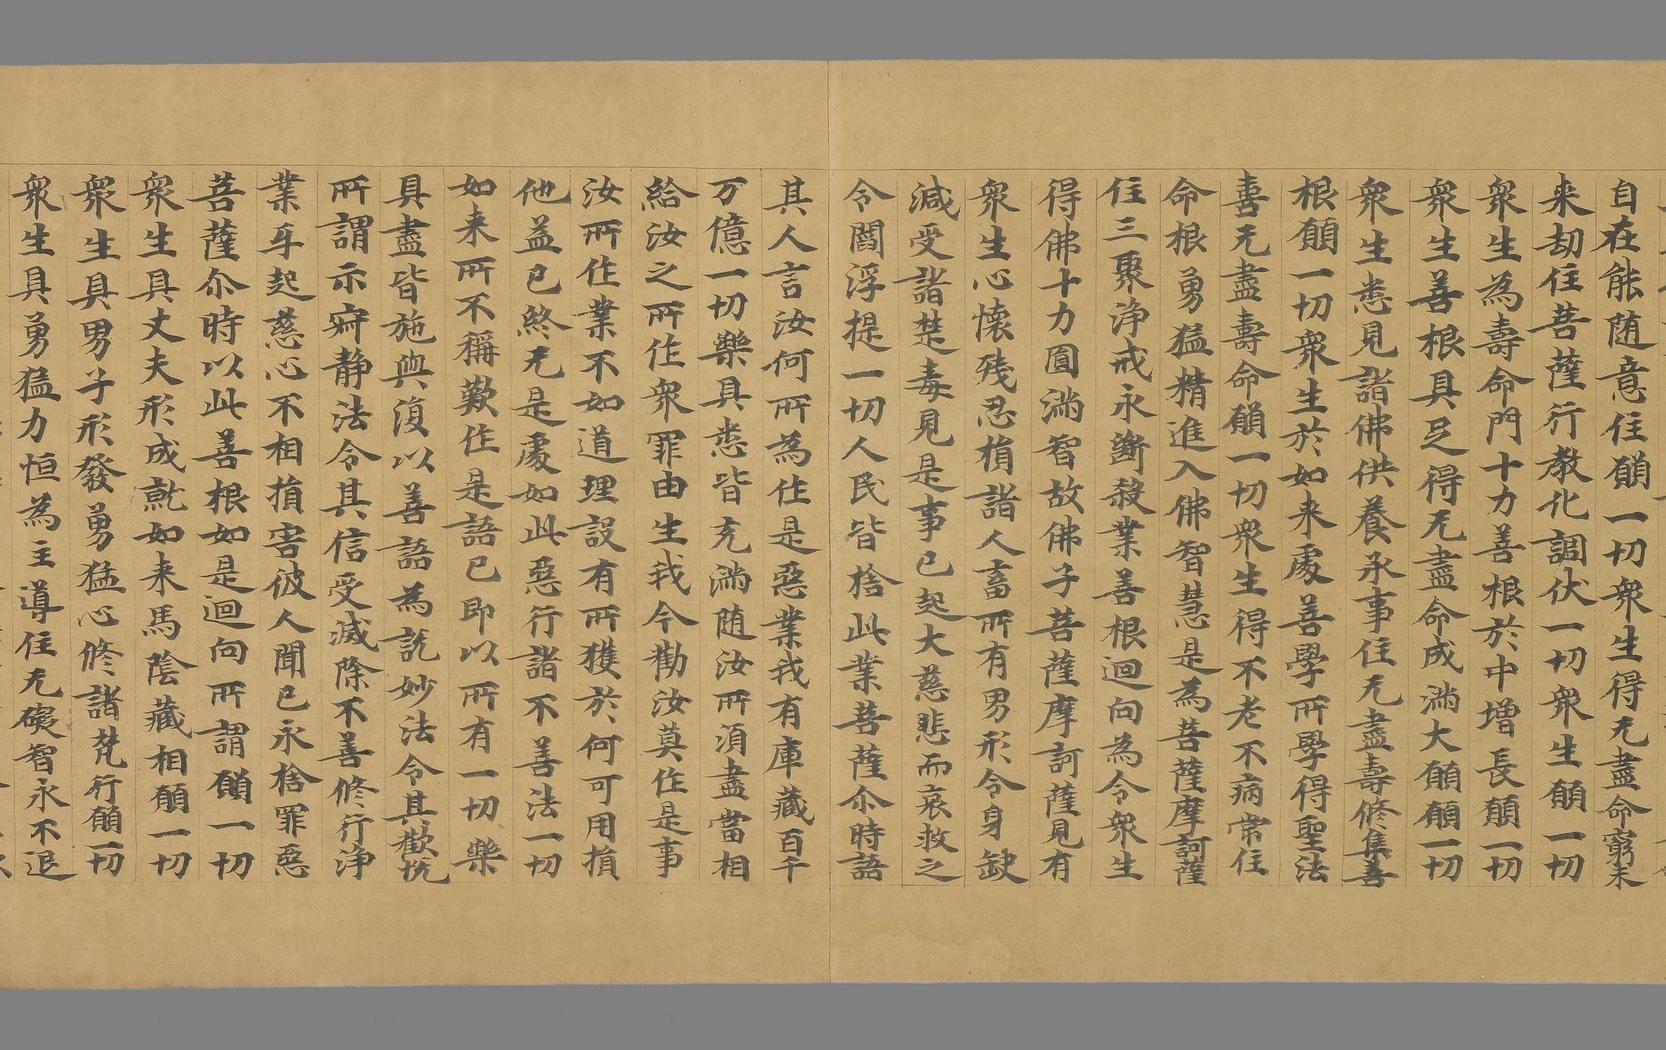 自在能随意住願一切衆生得无盡命窮未
来劫住菩薩行教化調伏一切衆生願一切
衆生為壽命門十力善根於中增長願一切
衆生善根具足得无盡命成滿大願願一切
衆生悉見諸佛供養承事住无盡壽修集善
根願一切衆生於如来處善學所學得聖法
喜无盡壽命願一切衆生得不老不病常住
命根勇猛精進入佛智慧是為菩薩摩訶薩
住三聚浄戒永斷殺業善根迴向為令衆生
得佛十力圓滿智故佛子菩薩摩訶薩見有
衆生心懷殘忍損諸人畜所有男形令身缺
減受諸楚毒見是事已起大慈悲而哀救之
令閻浮提一切人民皆捨此業菩薩尒時語
其人言汝何所為住是惡業我有庫藏百千
万億一切樂具悉皆充滿随汝所湏盡當相
給汝之所作衆罪由生我今勸汝莫作是事
汝所作業不如道理設有所獲於何可用損
他益己終无是處如此惡行諸不善法一切
如来所不稱歎作是語已即以所有一切樂
具盡皆施與復以善語為說妙法令其歡悅
所謂示寂静法令其信受滅除不善修行浄
業㸦起慈心不相損害彼人聞已永捨罪惡
菩薩尒時以此善根如是迴向所謂願一切
衆生具丈夫形成就如来馬陰藏相願一切
衆生具男子形發勇猛心修諸梵行願一切
衆生具勇猛力恒為主導住无礙智永不退